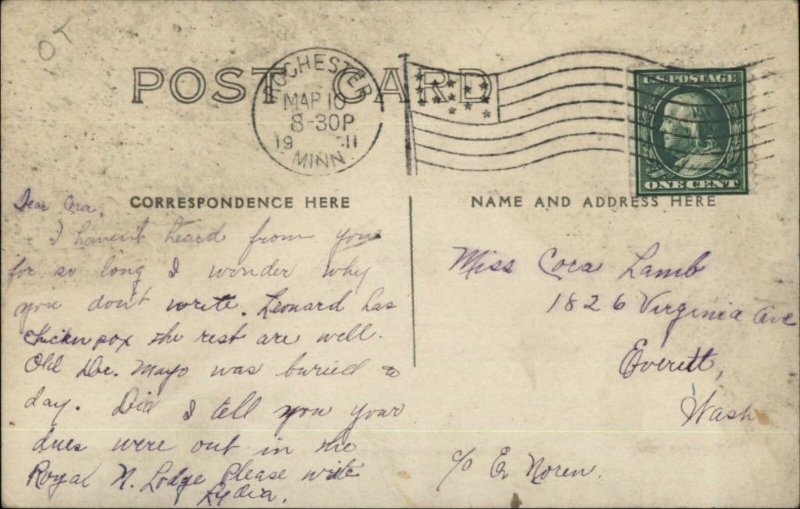 OT
POST CARD
ROCHESTER
MAR 10
8-30P
19 11
MINN.
U.S. POSTAGE
ONE CENT
CORRESPONDENCE HERE
NAME AND ADDRESS HERE
Dear Cora,
I haven't heard from you
for so long I wonder why
you don't write. Leonard has
chicken pox the rest are well.
Old Dr. Mayo was buried to
day. Did I tell you your
dues were out in the
Royal N. Lodge Please write
Lydia.
Miss Cora Lamb
1826 Virginia Ave
Everett,
Wash
c/o E. Noren.